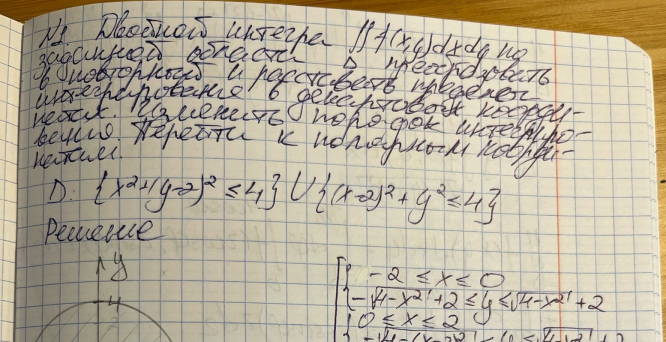 N1. Двойной интегра ∬f(x,y)dxdy по
заданной области D преобразовать
в повторный и расставить пределы
интегрирования в декартовых коорди-
натах. Изменить порядок интегриро-
вания. Перейти к полярным коорди-
натам.
D: {x²+(y-2)² ≤ 4} ∪ {(x-2)² + y² ≤ 4}
Решение
y
4
-2 ≤ x ≤ 0
-√4-x² +2 ≤ y ≤ √4-x² +2
0 ≤ x ≤ 2
-√4-(x-2)² ≤ y ≤ √4-x² +2